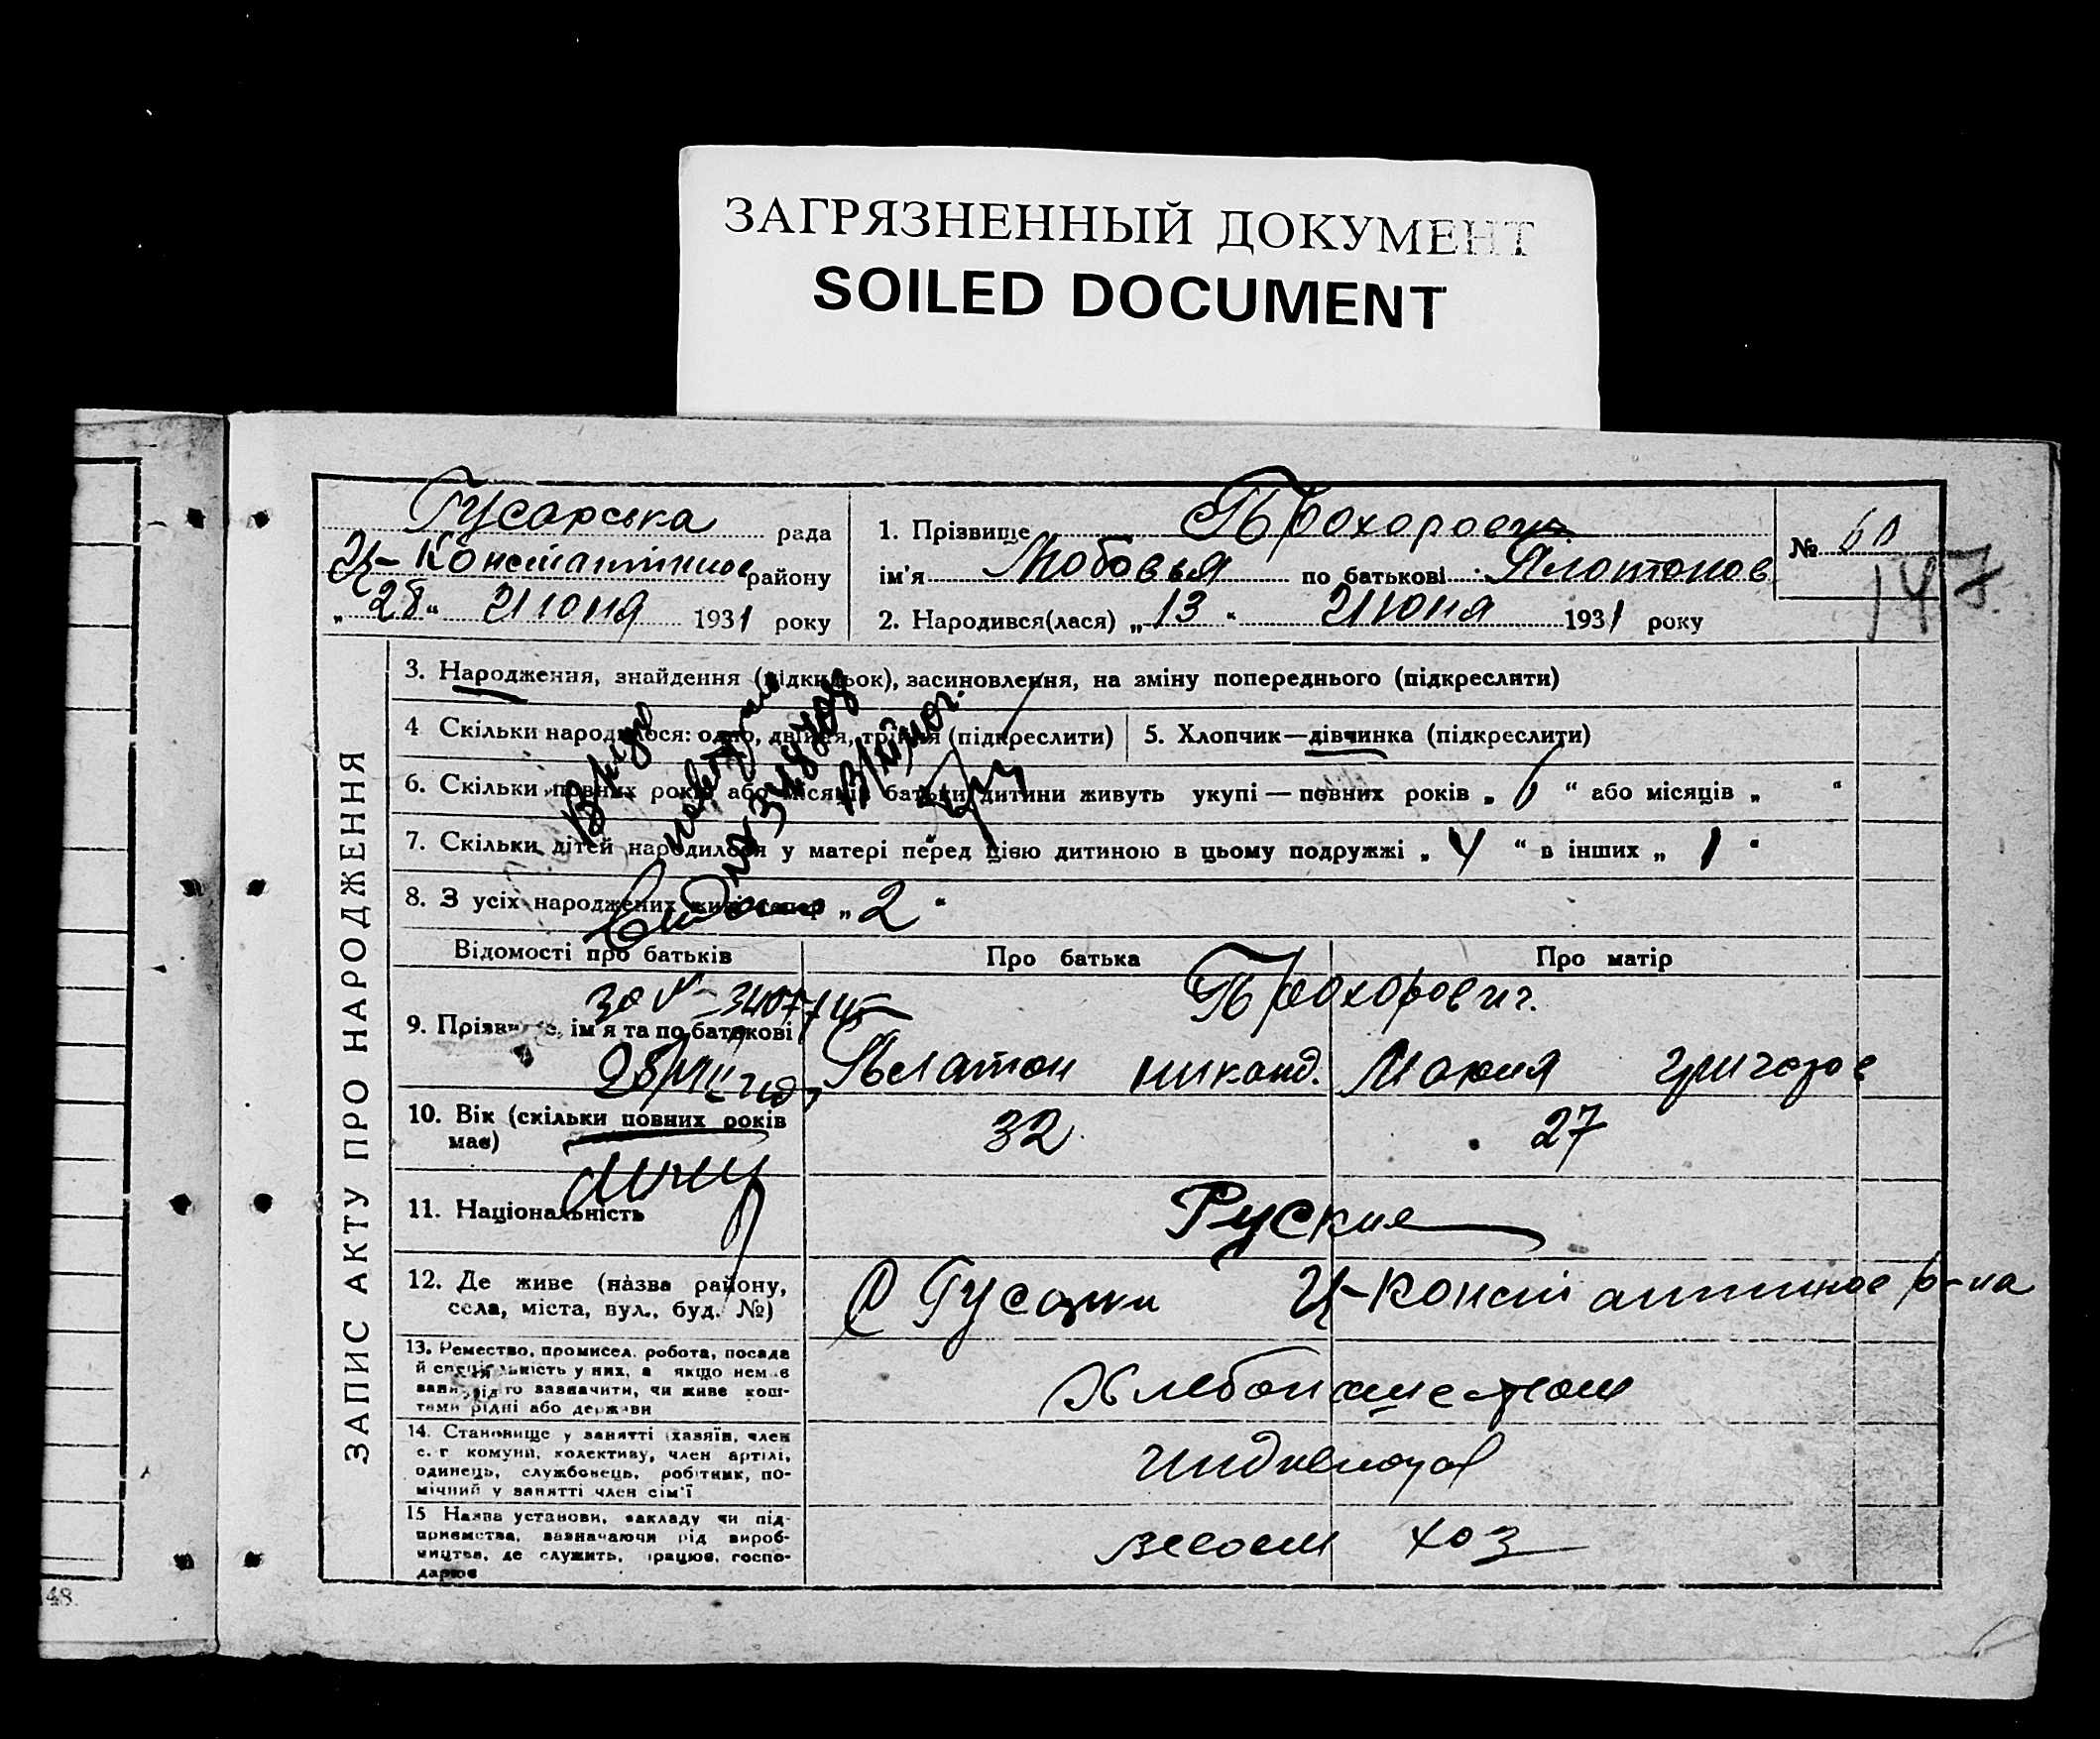 ЗАГРЯЗНЕННЫЙ ДОКУМЕНТ
SOILED DOCUMENT
Гусарська рада
Ц-Константиное району
„28“ Июня 1931 року
1. Прізвище Прохорович
ім'я Любовья по батькові Плотонов
2. Народився(лася) „13“ Июня 1931 року
№ 60
147
ЗАПИС АКТУ ПРО НАРОДЖЕННЯ
3. Народження, знайдення (підкидьок), засиновлення, на зміну попереднього (підкреслити)
4 Скільки народилося: одно, двійня, трійня (підкреслити)
5. Хлопчик—дівчинка (підкреслити)
6. Скільки повних років або місяців батьки дитини живуть укупі — повних років „6“ або місяців „ “
7. Скільки дітей народилося у матері перед цією дитиною в цьому подружжі „4“ в інших „1“
8. З усіх народжених живі тепер „2“
Відомості про батьків
Про батька
Про матір
9. Прізвище, ім'я та по батькові
Прохорович.
Платон никанд.
Мария григоров
10. Вік (скільки повних років має)
32
27
11. Національність
Руские
12. Де живе (назва району,
села, міста, вул., буд. №)
С Гусарки Ц-Константиное р-на
13. Ремество, промисел, робота, посада
й спеціяльність у них, а якщо немає
заняття, то зазначити, чи живе кош-
тами рідні або держави
Хлебопашеством
14. Становище у занятті (хазяїн, член
с. г. комуни, колективу, член артілі,
одинець, службовець, робітник, по-
мічний у занятті член сім'ї
15 Назва установи, закладу чи під-
приємства, зазначаючи рід вироб-
ництва, де служить, працює, госпо-
дарює
хоз
48.